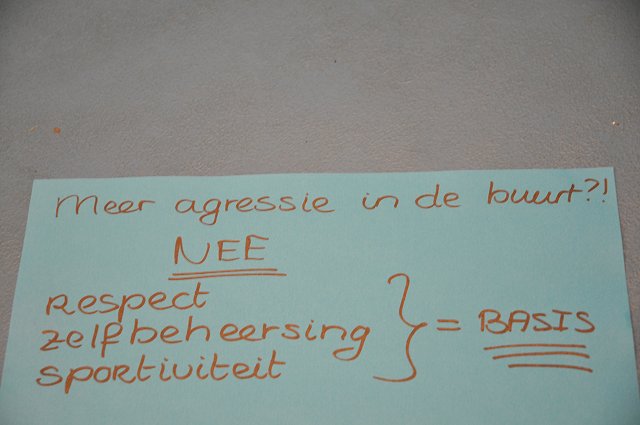 Meer agressie in de buurt?!
NEE
Respect
zelfbeheersing } = BASIS
sportiviteit